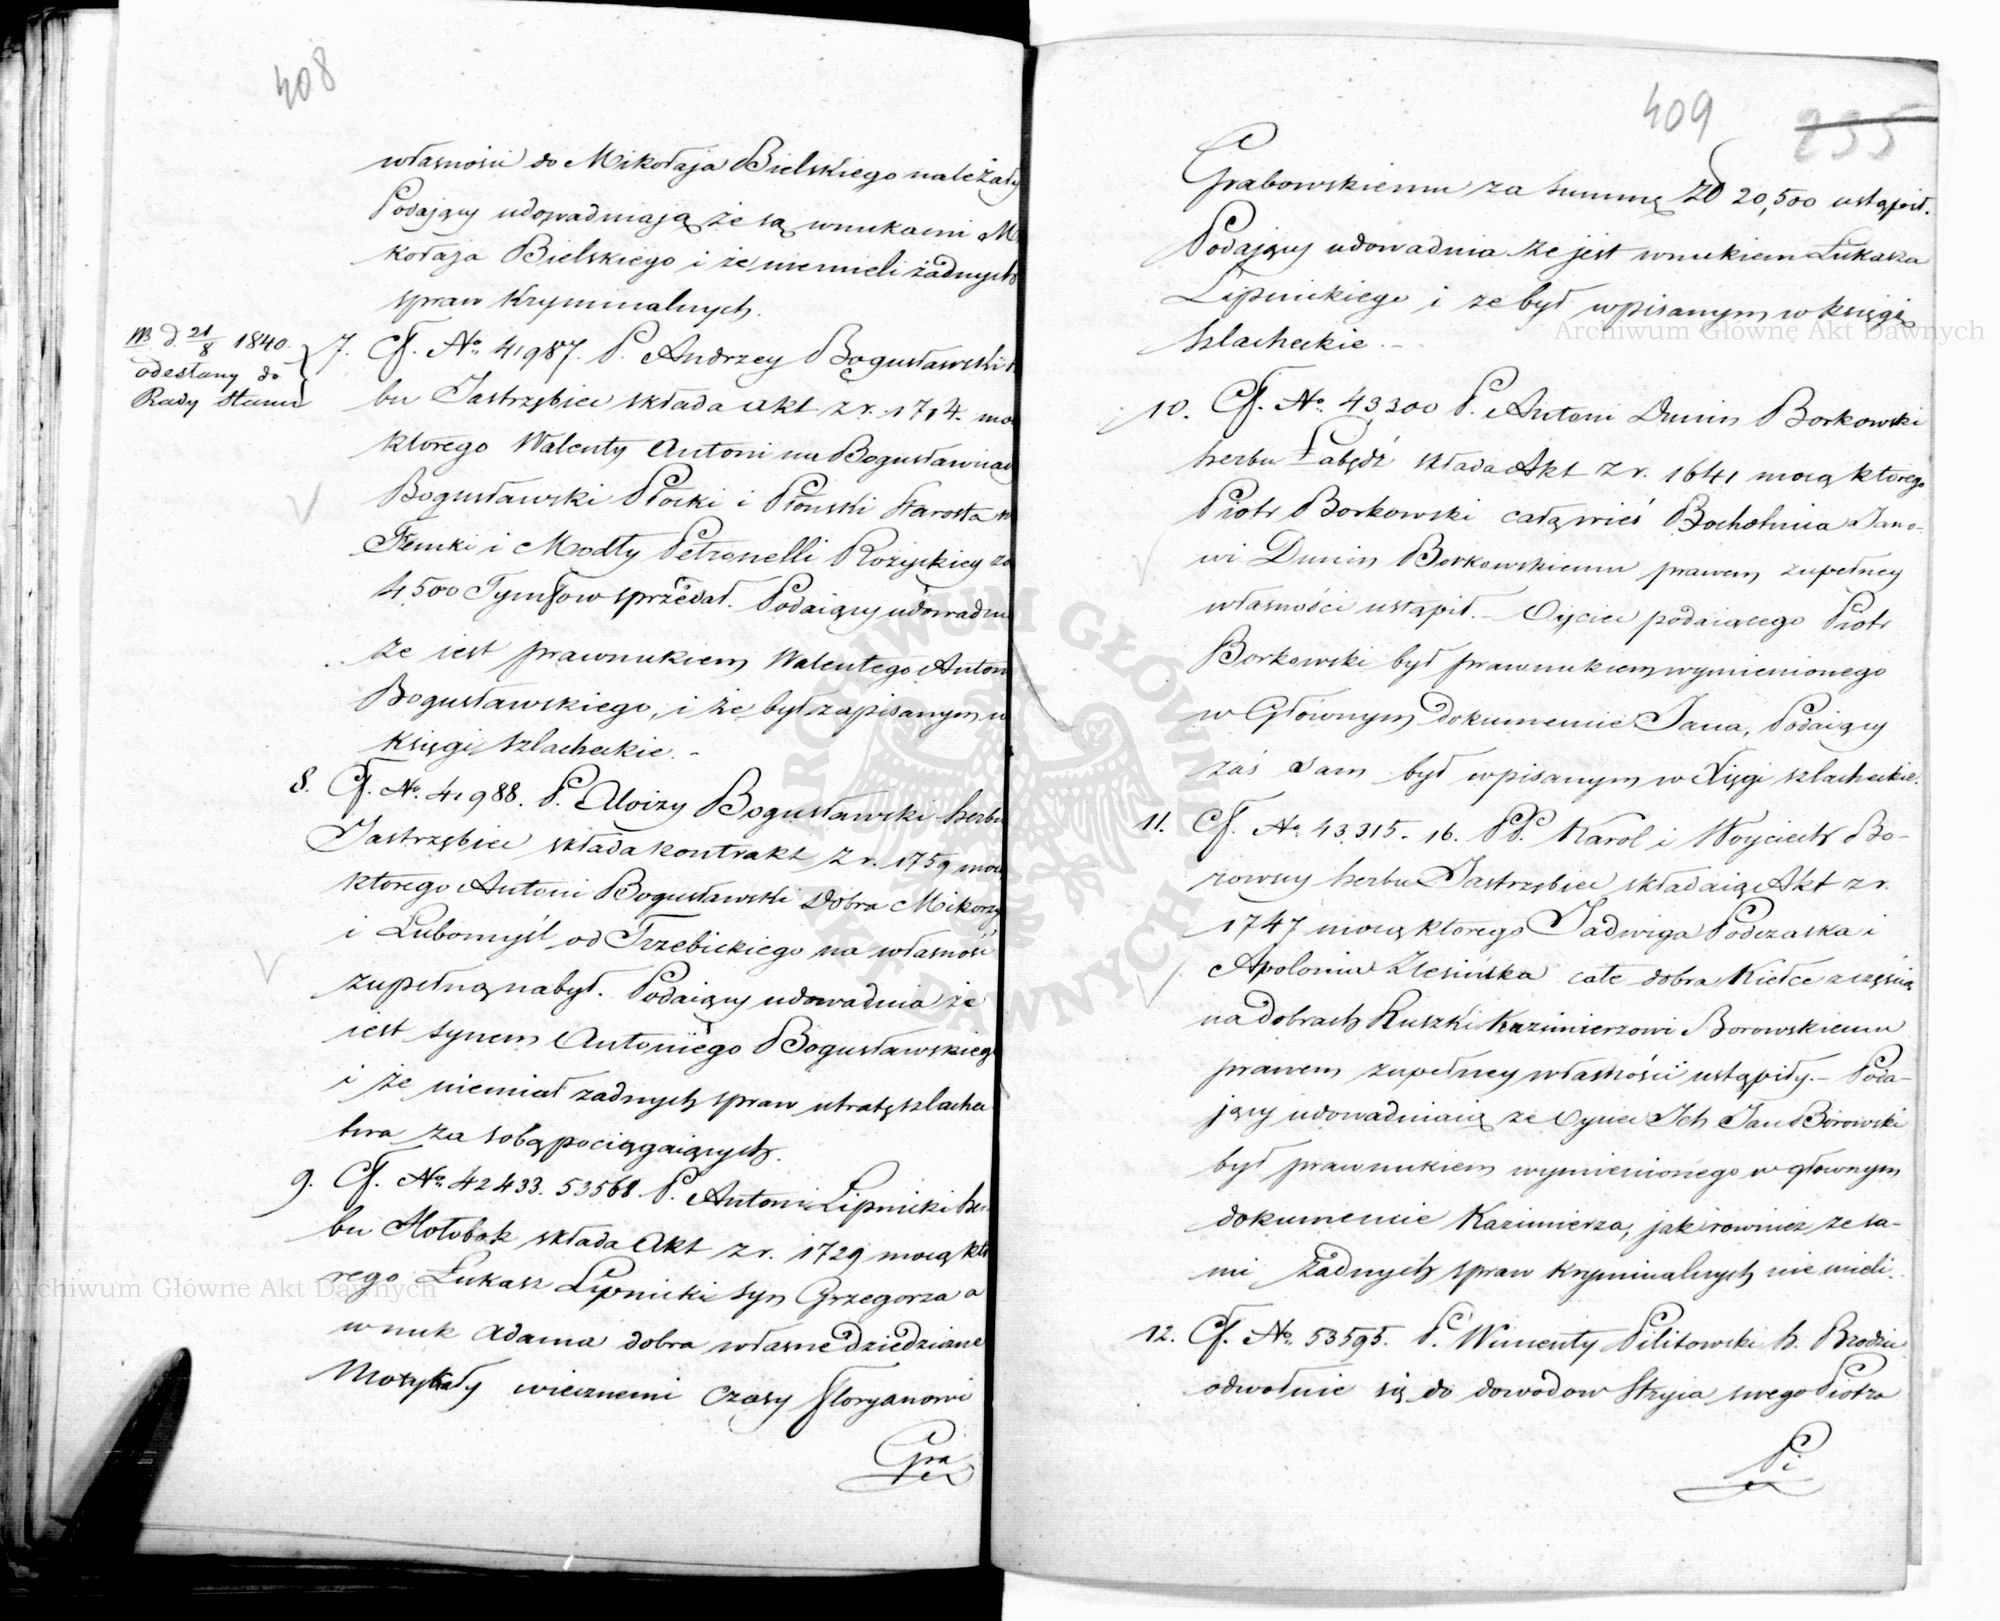 408
własności do Mikołaja Bielskiego należały
Podający udowadniają że są wnukami Mi
kołaja Bielskiego i że niemieli żadnych
spraw kryminalnych.
NB d. 21/8 1840.
odesłany do
Rady Stanu
7. Cf. No. 41987. P. Andrzey Bogusławski
bu Jastrzębiec składa akt z r. 1714. mo
ktorego Walenty Antoni na Bogusławicach
Bogusławski Płocki i Płonski Starosta
i Modły Petronelli Rożyckiey za
4,500 Tymfow sprzedał. Podaiący udowadnia
że iest prawnukiem Walentego Antoni
Bogusławskiego, i że był zapisanym w
księgi szlacheckie. -
8. Cf. No. 41988. P. Aloizy Bogusławski herbu
Jastrzębiec składa kontrakt z r. 1759 mocą
ktorego Antoni Bogusławski Dobra Mikorzy
i Lubomyśl od Trzebickiego na własność
zupełną nabył. Podaiący udowadnia że
iest synem Antoniego Bogusławskiego
i że niemiał zadnych spraw utratę szlachec
twa za sobą pociągaiących.
9. Cf. No. 42433. 53568 P. Antoni Lipnicki her
bu Hołobok składa Akt z r. 1729 mocą kto
rego Łukasz Lipnicki syn Grzegorza a
wnuk Adama dobra własne dziedziczne
Motykały wiecznemi czasy Floryanowi
Gra
409
235
Grabowskiemu za summę Zł 20,500 ustąpił.
Podający udowadnia że jest wnukiem Łukasza
Lipnickiego i że był wpisanym w księgi
szlacheckie. -
10. Cf. No. 43300 P. Antoni Dunin Borkowski
herbu Łabędź składa Akt z r. 1641 mocą ktorego
Piotr Borkowski całą wieś Bochotnica Jano-
wi Dunin Borkowskiemu prawem zupełney
własności ustąpił. - Oyciec podaiącego Piotr
Borkowski był prawnukiem wymienionego
w Głównym dokumencie Jana, Podaiący
zaś sam był wpisanym w Xięgi szlacheckie.
11. Cf. No. 43315. 16. PP. Karol i Woyciech Bo-
rowscy herbu Jastrzębiec składaią Akt z r.
1747 mocą ktorego Jadwiga Podczaska i
Apolonia Zlesińska całe dobra Kiełce z częścią
na dobrach Ruszki Kazimierzowi Borowskiemu
prawem zupełney własności ustąpiły. - Poda-
jący udowadniaią że Oyciec Ich Jan Borowski
był prawnukiem wymienionego w głownym
dokumencie Kazimierza, jak rownież że sa-
mi żadnych spraw kryminalnych nie mieli.
12. Cf. No. 53595. P. Wincenty Pilitowski h. Brodzic
odwołuie się do dowodow Stryia swego Piotra
Pi
Archiwum Główne Akt Dawnych
Archiwum Główne Akt Dawnych
ARCHIWUM GŁÓWNE AKT DAWNYCH